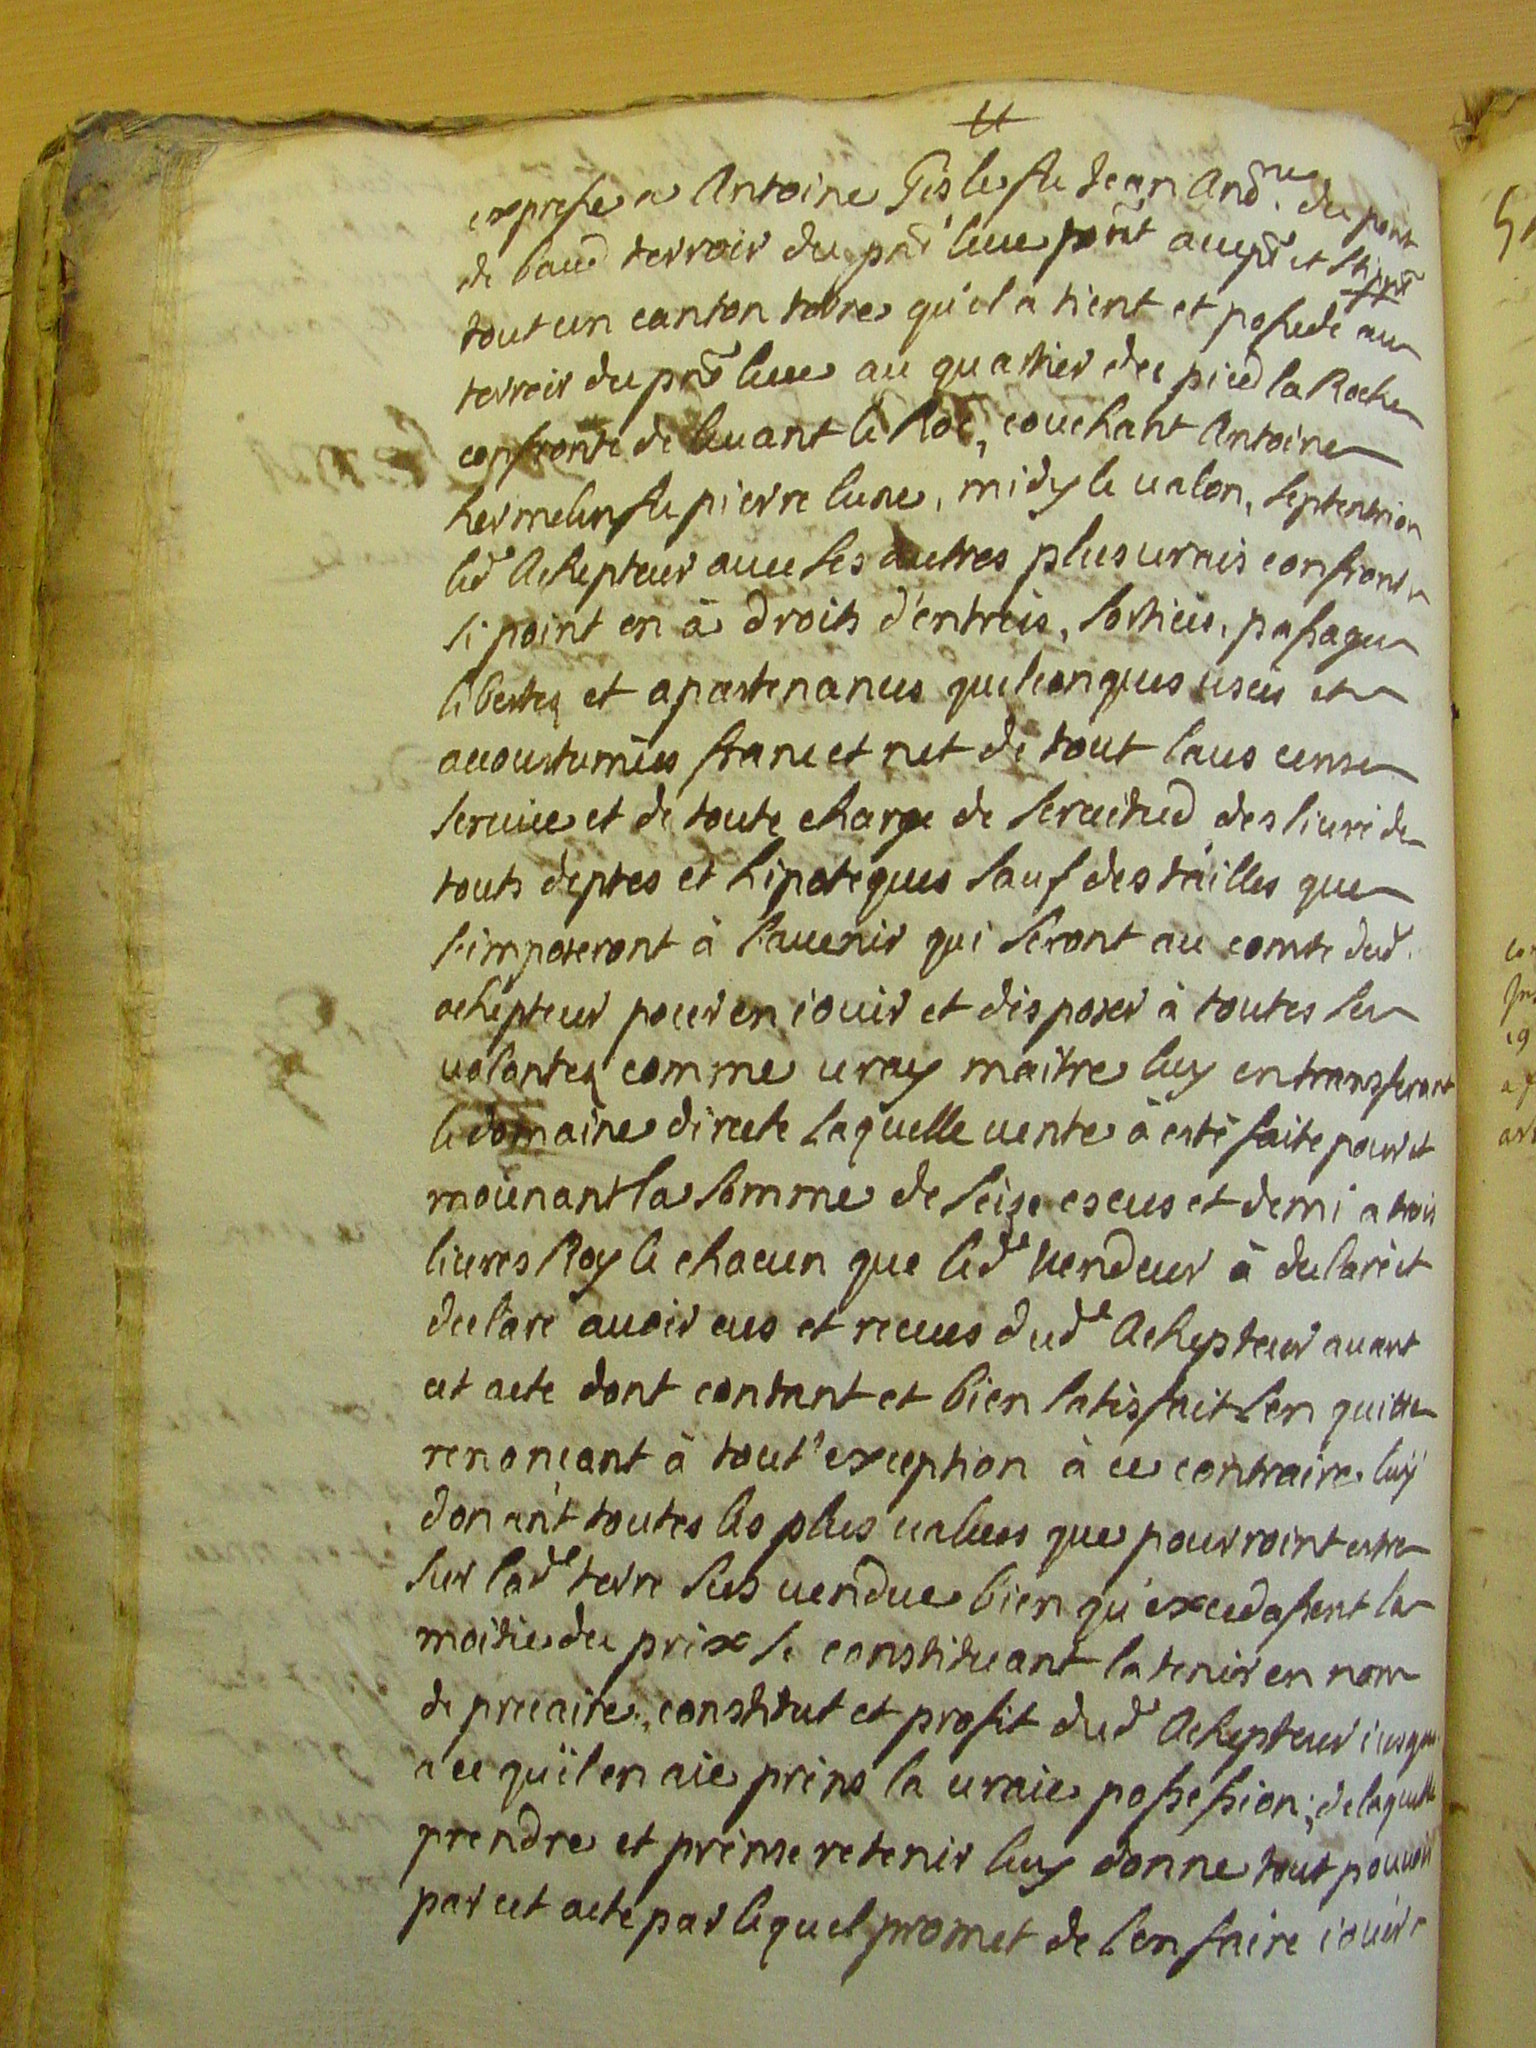 expresse a Antoine Gisle fu Jean And.ne du pont
de baud terroir du pnt luue pnt accept et stipnt
tout un canton terre qu'il a tient et possede au
terroir du pnt luue au quartier du pied la Roche
confronte de leuant le Roc, couchant Antoine
hermelin fu pierre lune, midy le ualon, septentrion
led achepteur auec ses autres plus urais confronts
si point en à droits d'entrées, sorties, passages
libertes et apartenances quelconques usées et
accoustumées franc et net de tout laus cense
seruice et de toute charge de seruitud des liuré de
touts deptes et hipoteques sauf des tailles que
s'imposeront à l'auenir qui seront au comte dud.
achepteur pour en iouir et disposer à toutes ses
uolontes comme uray maitre luy en transferant
le domaine directe laquelle uente à esté faite pour et
moienant la somme de seise escus et demi a trois
liures Roy le chacun que led.e Vendeur à declaré et
declare auoir eus et receus dud.e Achepteur auant
cet acte dont contant et bien satisfait l'en quitte
renonçant à tout'exception à ce contraire luy
donant toutes les plus ualues que pourroint estre
sur lad.e terre sus uendue bien qu'excedassent la
moitie du prix se constituant la tenir en nom
de precaire, constitut et profit dud.e Achepteur iusques
a ce qu'il en aie prins la uraie possession; de laquelle
prendre et prinse retenir luy donne tout pouuoir
par cet acte par lequel promet de l'en faire iouir